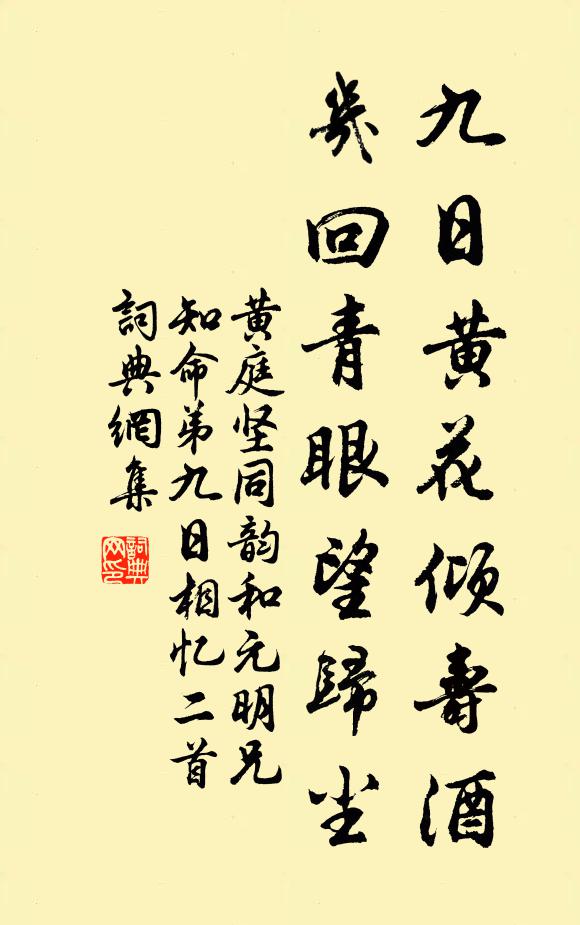 九日黄花倾壽酒
幾回青眼望歸尘
黄庭坚同韵和元明兄
知命弟九日相忆二首
詞典網集
詞典網印